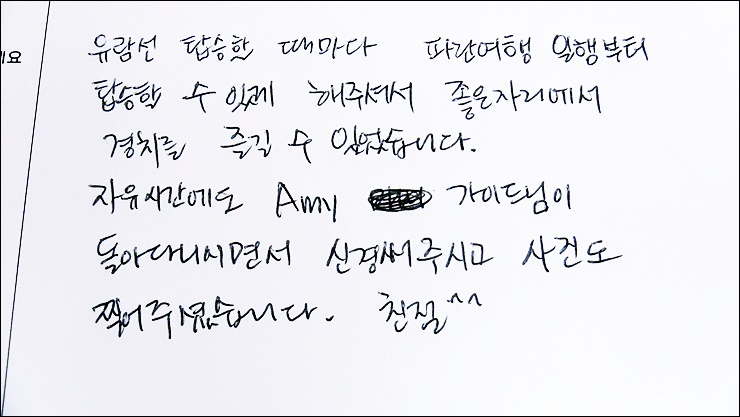 세요
유람선 탑승할 때마다 파란여행 일행부터
탑승할 수 있게 해주셔서 좋은자리에서
경치를 즐길 수 있었습니다.
자유시간에도 Amy 가이드님이
돌아다니시면서 신경써주시고 사진도
찍어주셨습니다. 친절^^